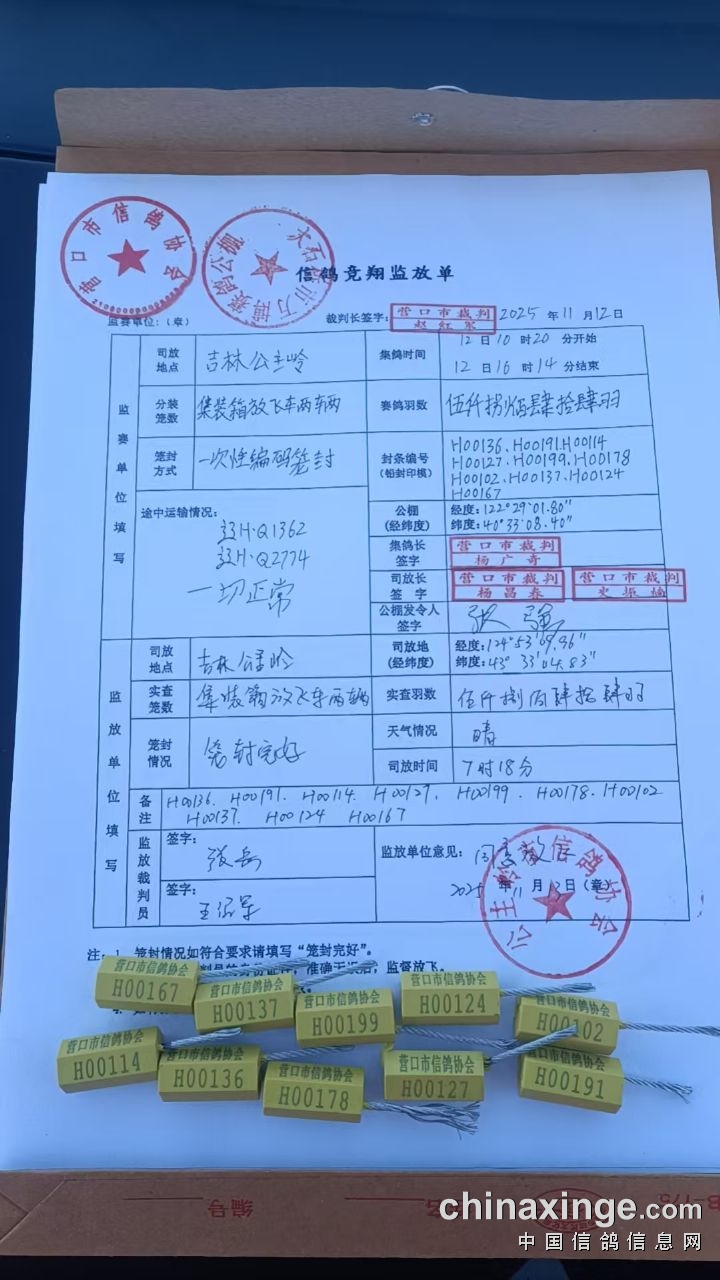 营口市信鸽协会
大石桥市万博赛鸽公棚
信鸽竞翔监放单
监赛单位:(章)
裁判长签字: 营口市裁判 赵红军 2025年11月12日
监赛单位填写
司放地点
吉林公主岭
集鸽时间
12日10时20分开始
12日16时14分结束
分装笼数
集装箱放飞车两辆
赛鸽羽数
伍仟捌佰肆拾肆羽
笼封方式
一次性编码笼封
封条编号(铅封印模)
H00136、H00191、H00114
H00127、H00199、H00178
H00102、H00137、H00124
H00167
途中运输情况:
辽H·Q1362
辽H·Q2774
一切正常
公棚(经纬度)
经度:122°29′01.80″
纬度:40°33′08.40″
集鸽长签字
营口市裁判
杨广奇
司放长签字
营口市裁判
杨昌春
营口市裁判
公棚发令人签字
张强
监放单位填写
司放地点
吉林公主岭
司放地(经纬度)
经度:124°53′09.96″
纬度:43°33′04.83″
实查笼数
集装箱放飞车两辆
实查羽数
伍仟捌佰肆拾肆羽
笼封情况
笼封完好
天气情况
晴
司放时间
7时18分
备注
H00136. H00191. H00114. H00127. H00199. H00178. H00102
H00137. H00124 H00167
监放裁判员
签字:
签字:
监放单位意见:
2025年11月13日(章)
公主岭信鸽协会
注:1、笼封情况如符合要求请填写“笼封完好”。
准确无误后,监督放飞。
营口市信鸽协会
H00167
营口市信鸽协会
H00137
营口市信鸽协会
H00199
营口市信鸽协会
H00124
营口市信鸽协会
H00102
营口市信鸽协会
H00114
营口市信鸽协会
H00136
营口市信鸽协会
H00178
营口市信鸽协会
H00127
营口市信鸽协会
H00191
编号
chinaxinge.com
中国信鸽信息网